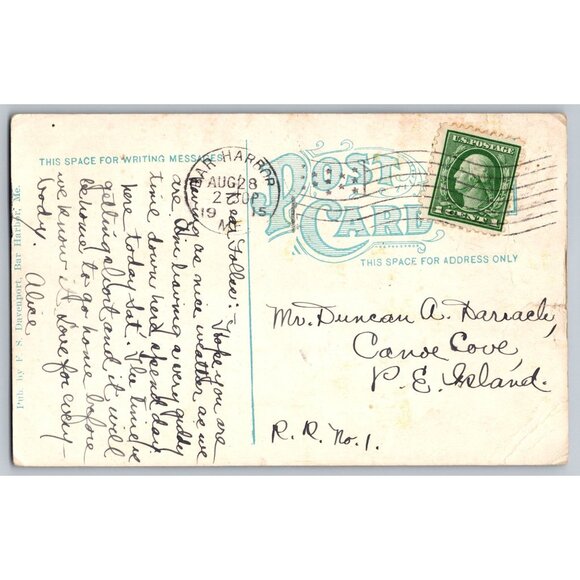 THIS SPACE FOR WRITING MESSAGES
POST CARD
THIS SPACE FOR ADDRESS ONLY
BAR HARBOR
AUG 28
1915
M
U.S. POSTAGE
1 CENT 1
Pub. by F. S. Davenport, Bar Harbor, Me.
Dear Folks:— Hope you are
having as nice weather as we
are. Am having a very giddy
time down here, spend day
here today Sat. The time is
getting short and it will
be home to go home before
we know it. Love for every
body. Alice
Mr. Duncan A. Darrach,
Canoe Cove,
P. E. Island.
R. R. No. 1.